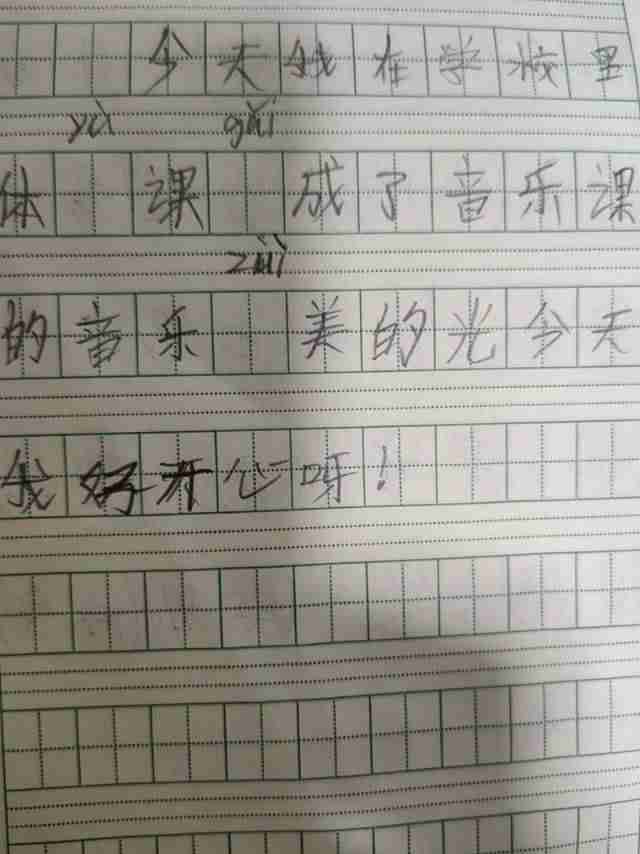 今天我在学校里
yù gǎi
体 课 成了音乐课
zuì
的音乐 美的光今天
我好开心呀!